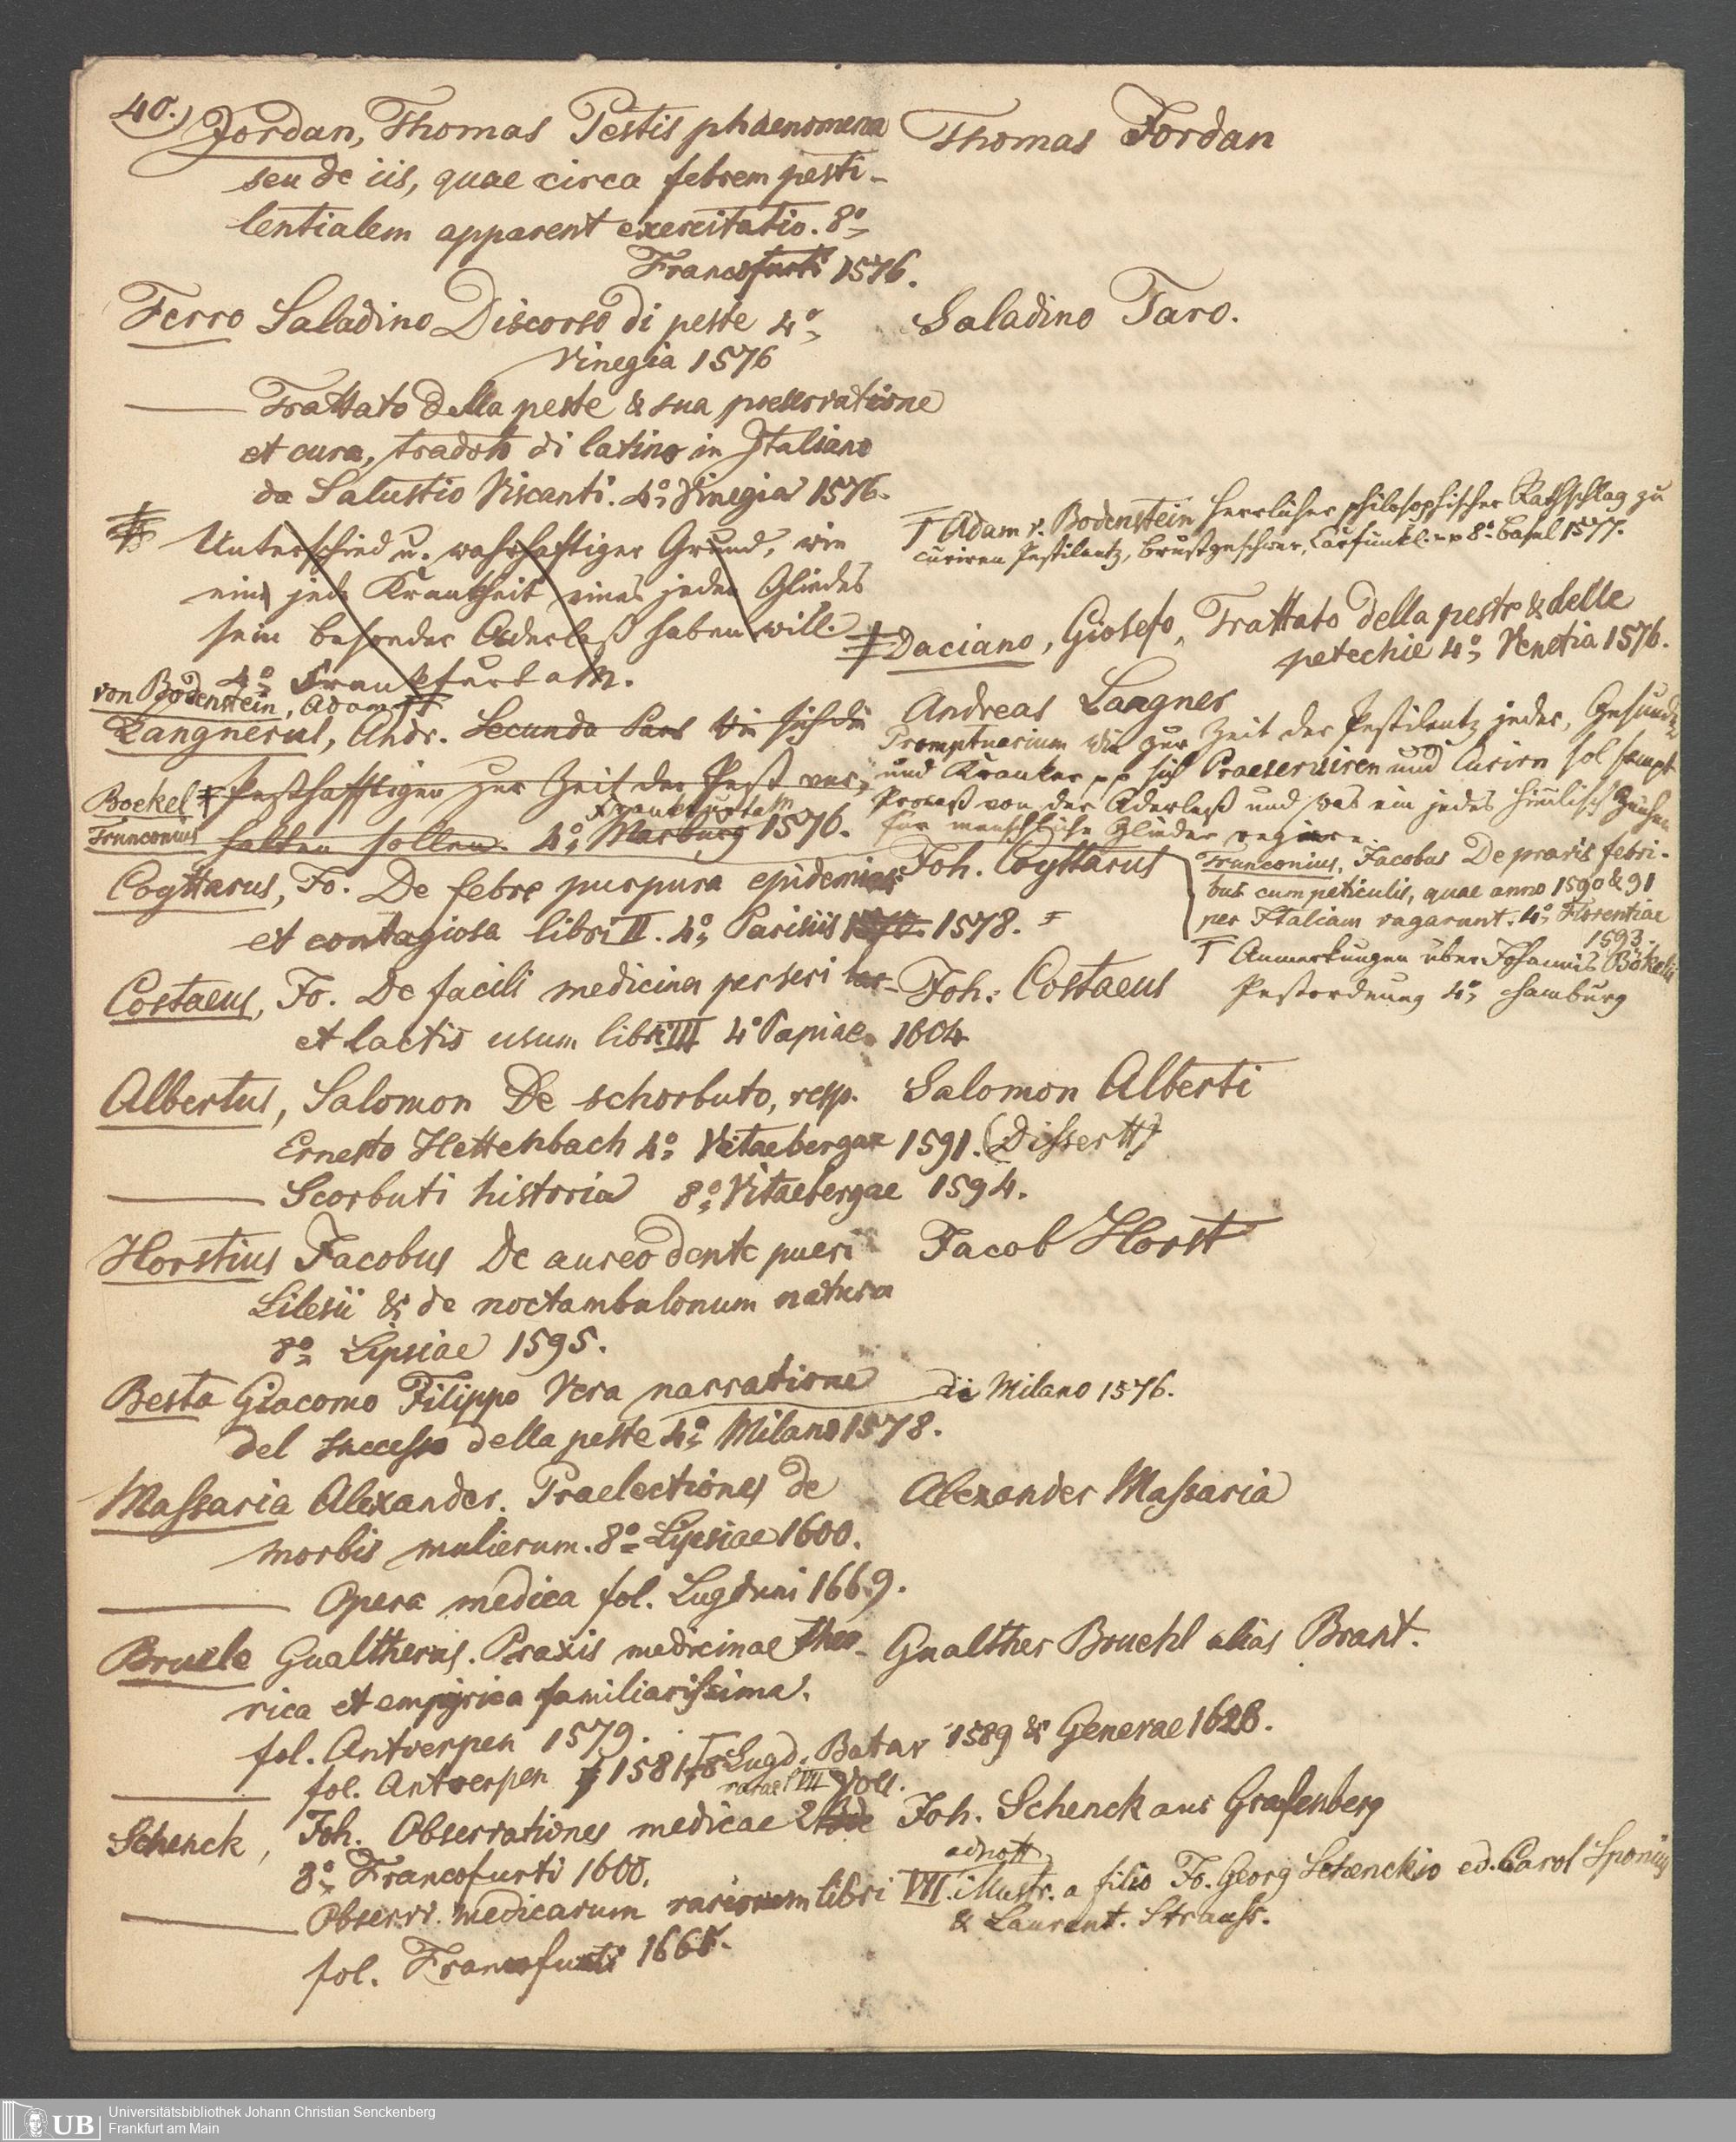 40.) Jordan, Thomas Pestis phaenomena
seu de iis, quae circa febrem pesti-
lentialem apparent exercitatio. 8°
Francofurti 1576.
Thomas Jordan
Ferro Saladino Discorso di peste 4°
Vinegia 1576
Saladino Faro.
Trattato della peste & sua preservatione
et cura, tradoto di latino in Italiano
da Salustio Viscanti. 4° Vinegia 1576.
Unterschied u. wahrhafftiger Grund, wie
eine jede Krankheit eines jeden Gliedes
sein besonder Aderlaß haben will.
4° Frankfurt a M.
Adam v. Bodenstein Herrlicher philosophischer Rathschlag zu
curiren Pestilentz, Brustgeschwer, Carfunkl. pp 8° Basel 1577.
Daciano, Giosefo, Trattato della peste & delle
petechie 4° Venetia 1576.
von Bodenstein, Adam
Langnerus, Andr. Secunda Pars Wie sich die
Pesthafftigen zur Zeit der Pest ver-
halten sollen. 4° Marburg 1576.
Frankfurt a M
Boekel
Trunconius
Andreas Langner
Promptuarium wie zur Zeit der Pestilentz jeder, Gesunder
und Kranker pp sich Praeserviren und Curirn sol sampt
Proceß von der Aderlaß und was ein jedes himlisch Zeichen
für menschliche Glieder regiere.
Coyttarus, Jo. De febre purpura epidemica
et contagiosa libri II. 4° Parisiis 1578.
Joh. Coyttarus
Trunconius, Jacobus De praxis febri-
bus cum peticulis, quae anno 1590 & 91
per Italiam vagarunt. 4° Florentiae
1593.
Anmerkungen über Johannis Bökelii
Pestordnung 4° Hamburg
Costaeus, Jo. De facili medicina per seri
et lactis usum libri III 4° Papiae 1604
Joh. Costaeus
Albertus, Salomon De schorbuto, resp.
Ernesto Hettenbach 4° Vitaebergae 1591. (Dissertt)
Salomon Alberti
Scorbuti historia 8° Vitaebergae 1594.
Horstius Jacobus De aureo dente pueri
Silesii & de noctambulonum natura
8° Lipsiae 1595.
Jacob Horst
Besta Giacomo Filippo Vera narratione
del successo della peste 4° Milano 1578.
di Milano 1576.
Massaria Alexander. Praelectiones de
morbis mulierum. 8° Lipsiae 1600.
Alexander Massaria
Opera medica fol. Lugduni 1669.
Bruele Gualtherus. Praxis medicinae theo-
rica et empyrica familiarissima.
fol. Antverpen 1579.
Gualther Bruehl alias Brant.
fol. Antverpen 1581 8 Lugd. Batav 1589 & Generae 1628.
Schenck, Joh. Observationes medicae
VII Voll.
8° Francofurti 1600.
Joh. Schenck aus Grafenberg
Observ. medicarum rariorum libri VII. illustr. a filio Jo. Georg Schenckio ed. Carol Sponius
adnott
& Laurent. Strauss.
fol. Francofurti 1665.
Universitätsbibliothek Johann Christian Senckenberg
Frankfurt am Main
UB